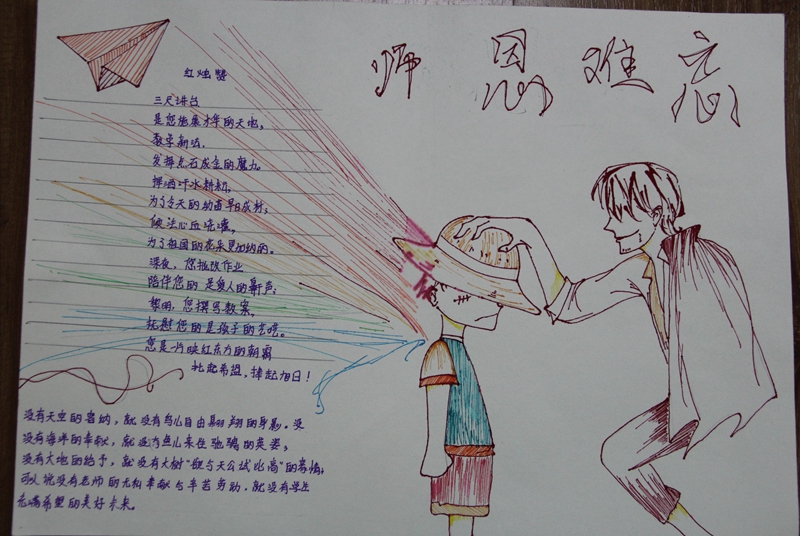 师恩难忘
红烛赞
三尺讲台
是您施展才华的天地。
教学新法,
发挥点石成金的魔力。
挥洒汗水耕耘,
为了今天的幼苗早日成材;
倾注心血浇灌,
为了祖国的花朵更加绚丽。
深夜,您批改作业
陪伴您的是蛩人的鼾声;
黎明,您撰写教案,
抚慰您的是孩子的
您是一片映红东方的朝霞
托起希望,捧起旭日!
没有天空的容纳,就没有鸟儿自由翱翔的身影。没
没有海洋的奉献,就没有鱼儿来往驰骋的英姿;
没有大地的给予,就没有大树“欲与天公试比高”的豪情;
可以说没有老师的无私奉献与辛苦劳动,就没有学生
充满希望的美好未来。